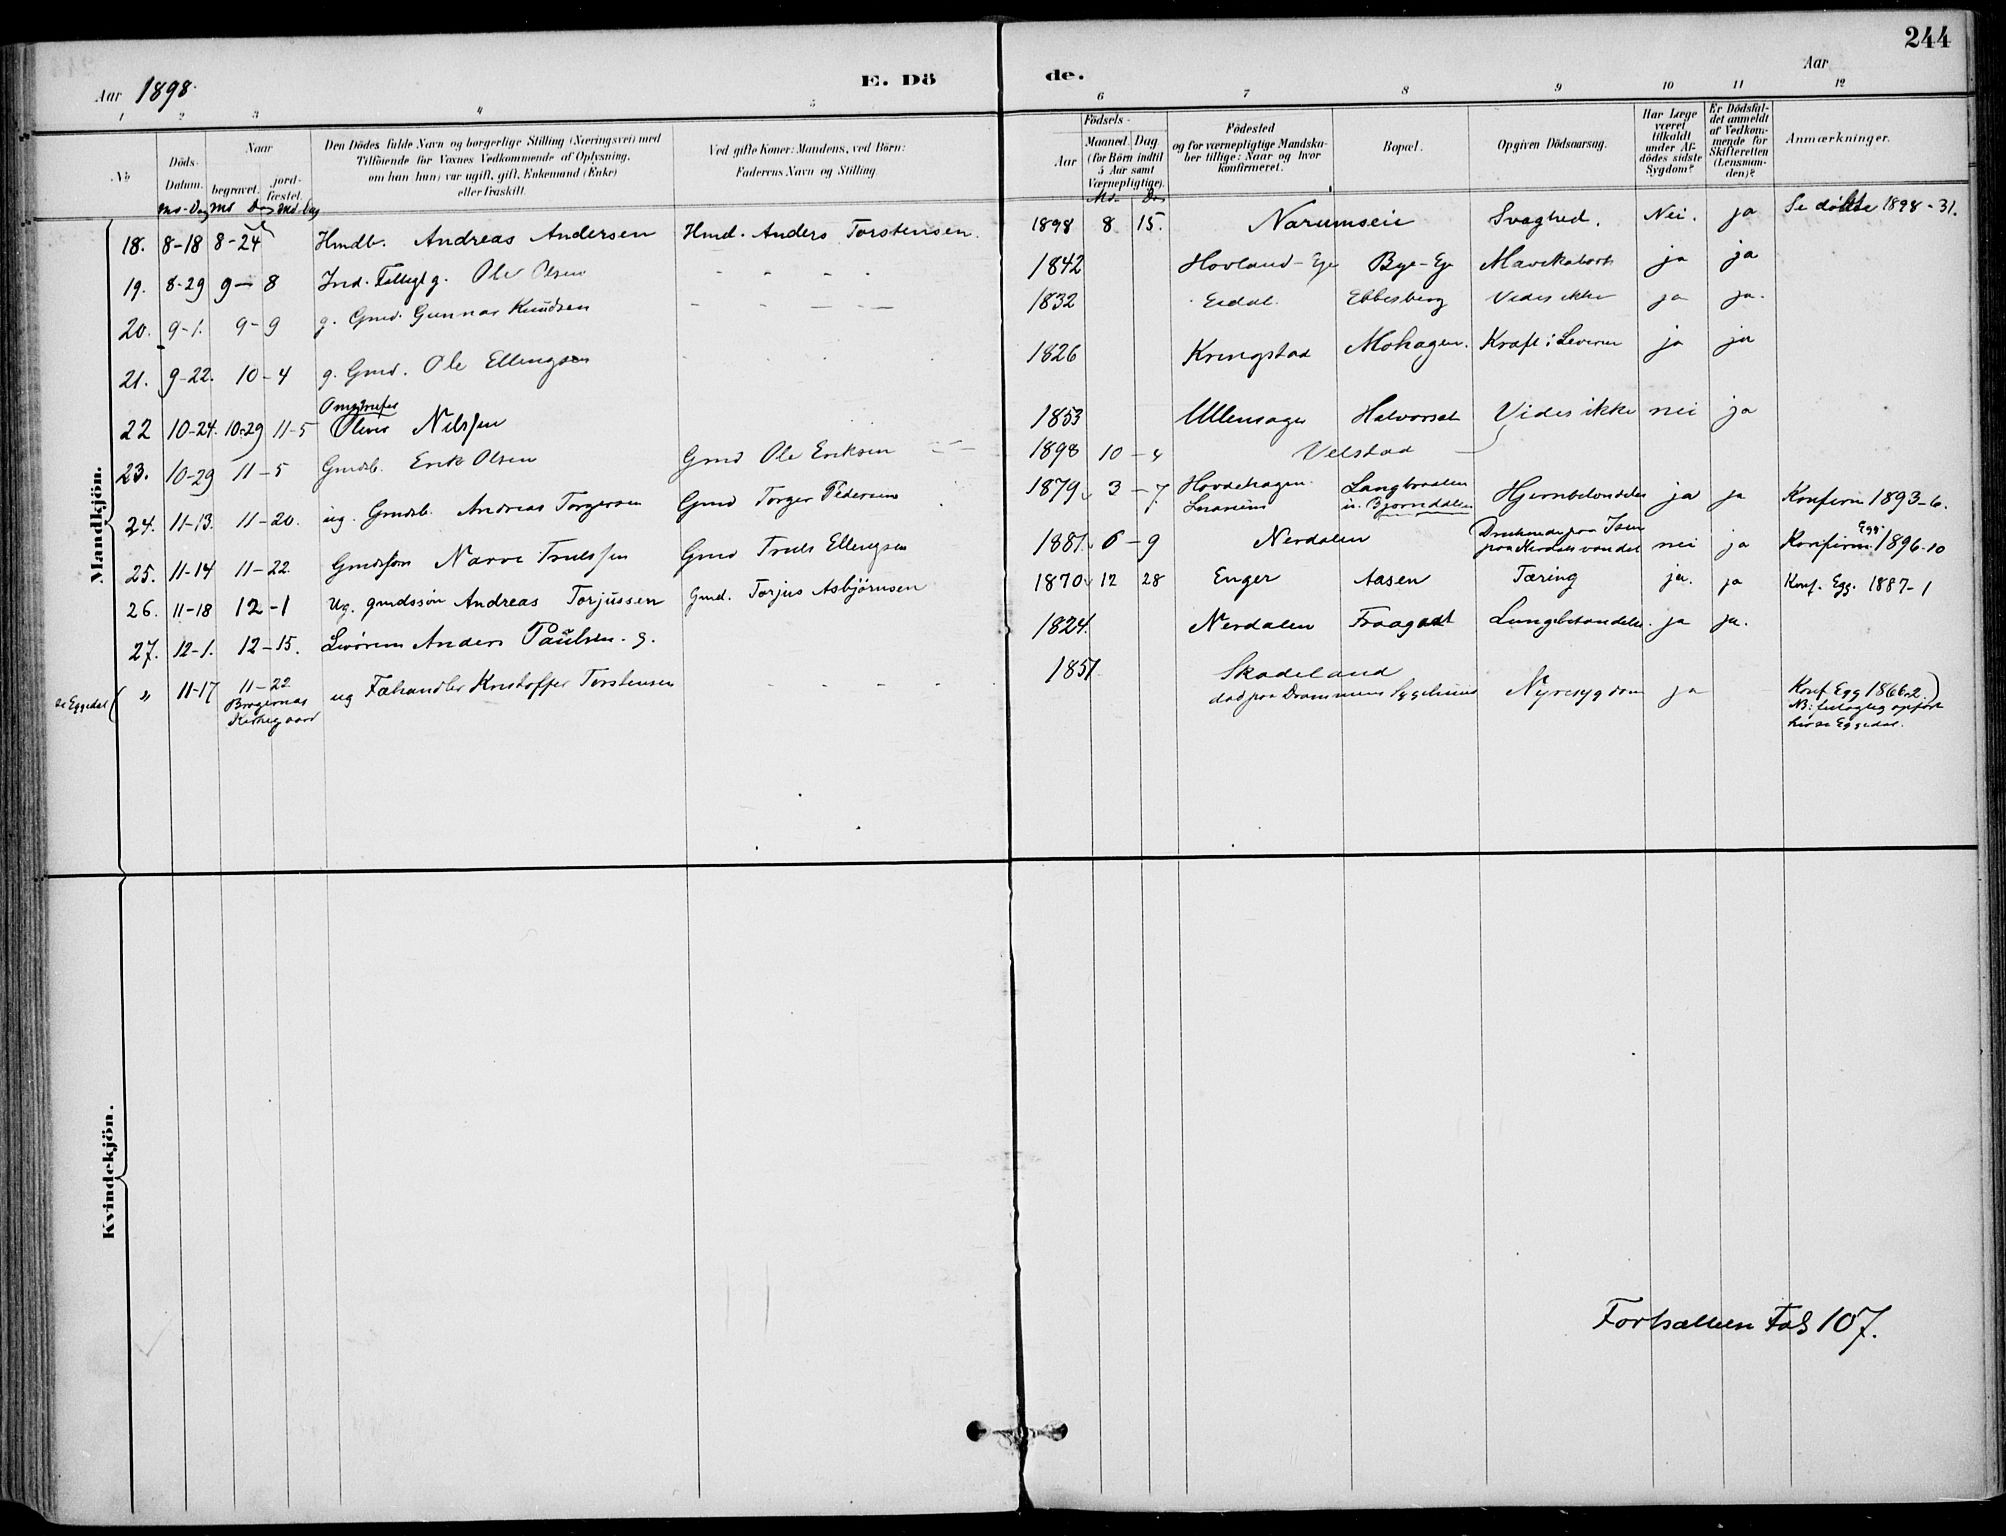 244
Aar 1898.
E. Dö
de.
Aar
1 2 3 4 5 6 7 8 9 10 11 12
No
Döds-Datum.
Naar
begravet.
jordfæstet.
Den Dödes fulde Navn og borgerlige Stilling (Næringsvei) med
Tilföiende for Voxnes Vedkommende af Oplysning,
om han (hun) var ugift, gift, Enkemand (Enke)
eller fraskilt.
Ved gifte Koner: Mandens, ved Börn:
Faderens Navn og Stilling.
Födsels-
Aar
Maaned. Dag
(for Börn indtil
5 Aar samt
Værnepligtige).
Födested
og for værnepligtige Mandskaber tillige: Naar og hvor
konfirmeret.
Bopæl.
Opgiven Dödsaarsag.
Har Læge
været
tilkaldt
under Afdödes sidste
Sygdom?
Er Dödsfaldet anmeldt
af Vedkommende for
Skifteretten
(Lensmanden)?
Anmærkninger.
Md-Dag Md Dag Md. Dag
Md. Dag
Mandkjön.
18. 8-18 8-24 Hmdb. Andreas Andersen Hmd. Anders Torstensen. 1898 8 15. Narumseie Svaghed. Nei. ja Se døbte 1898-31.
19. 8-29 9-8 Ind. Fattigl g. Ole Olsen - - - - 1842 Hovland-Eje Bye-Eje Mavekatarh ja ja
20. 9-1. 9-9 g. Gmd. Gunnar Knudsen - - - - 1832 Eidal Ebbesberg Vides ikke ja ja.
21. 9-22. 10-4 g. Gmd. Ole Ellingsen 1826 Kringstad Mohagen. Kræft i Leveren ja ja
22 10-24. 10-29 11-5 Oliver Nilssen 1853 Ullensager Halvorset Vides ikke nei ja
23. 10-29 11-5 Gmdsb. Erik Olsen Gmd Ole Eriksen 1898 10-4 Velstad
24. 11-13. 11-20. ug. Gmdsb. Andreas Torgersen Gmd Torger Pedersen 1879 3-7 Hovdehagen Langbraaten u. Bjørndalen Hjernebetændelse ja ja Konfirm 1893-6.
25. 11-14 11-22 Gmdssøn Narve Trulssen Gmd Truls Ellingsen 1881. 6-9 Nerdalen Druknede paa Isen paa Nerdalsvandet nei ja Konfirm. Egg. 1896-10
26. 11-18 12-1 Ug. gmdssøn Andreas Torjussen Gmd. Torjus Asbjörnsen 1870 12 28 Enger Aasen Tæring ja. ja Konf. Egg. 1887-1
27. 12-1. 12-15. Anders Paulsen. g. 1824. Nerdalen Fraagodt Lungebetændelse. ja ja.
se Eggedal ( " 11-17 11-22 Bragernæs Kirkegaard ug Fæhandler Kristoffer Torstensen - - - - 1851 Skadeland død paa Drammens Sygehuus Nyresygdom ja Konf. Egg 1866-2)
NB: opført
her se Eggedal.
Kvindekjön.
Fortsættes Fol 107.